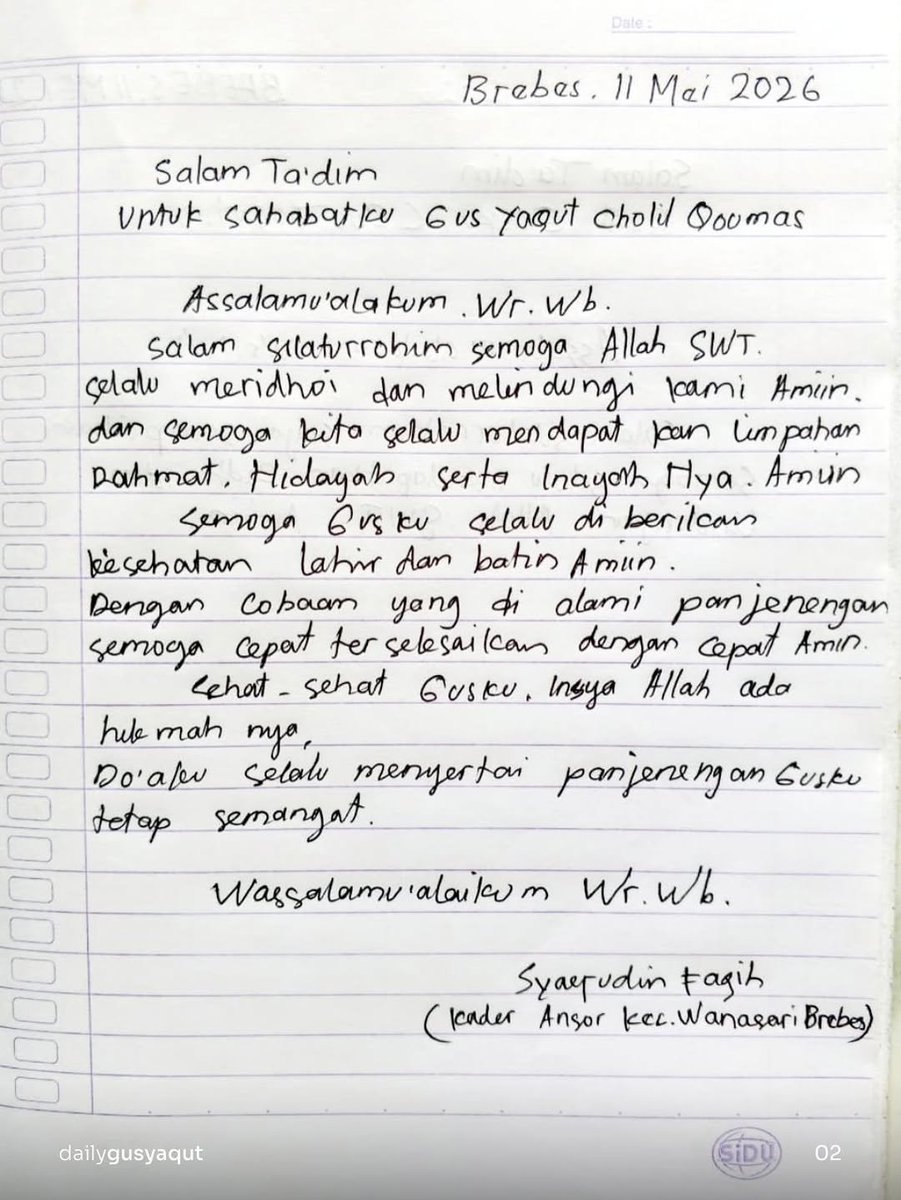 Date :
Brebes. 11 Mei 2026
Salam Ta'dim
Untuk Sahabatku Gus Yaqut Cholil Qoumas
Assalamu'alakum. Wr. Wb.
Salam silaturrohim semoga Allah SWT.
selalu meridhoi dan melindungi kami Amiin.
dan semoga kita selalu mendapat kan limpahan
Rahmat. Hidayah serta Inayah Nya. Amiin
semoga Gusku selalu di berikan
kesehatan lahir dan batin Amiin.
Dengan Cobaan yang di alami panjenengan
semoga cepat ter selesaikan dengan cepat Amin.
Sehat - sehat Gusku. Insya Allah ada
hik mah nya,
Do'aku selalu menyertai panjenengan Gusku
tetap semangat.
Wassalamu'alaikum Wr. Wb.
Syaefudin Faqih
(Kader Ansor Kec. Wanasari Brebes)
dailygusyaqut
SiDU
02